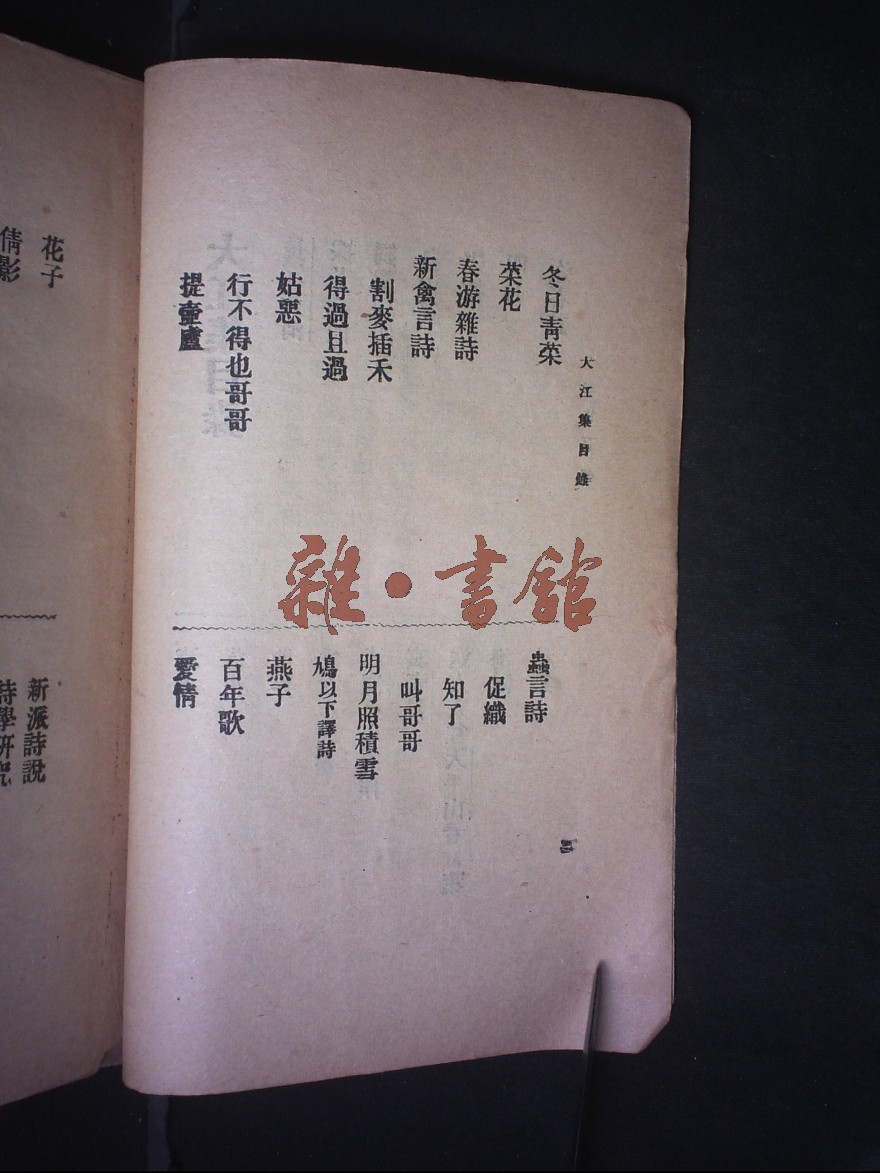 大江集目錄
冬日青菜
菜花
春游雜詩
新禽言詩
割麥插禾
得過且過
姑惡
行不得也哥哥
提壺盧
蟲言詩
促織
知了
叫哥哥
明月照積雪
鳩以下譯詩
燕子
百年歌
愛情
花子
倩影
新派詩說
詩學研究
雜·書館